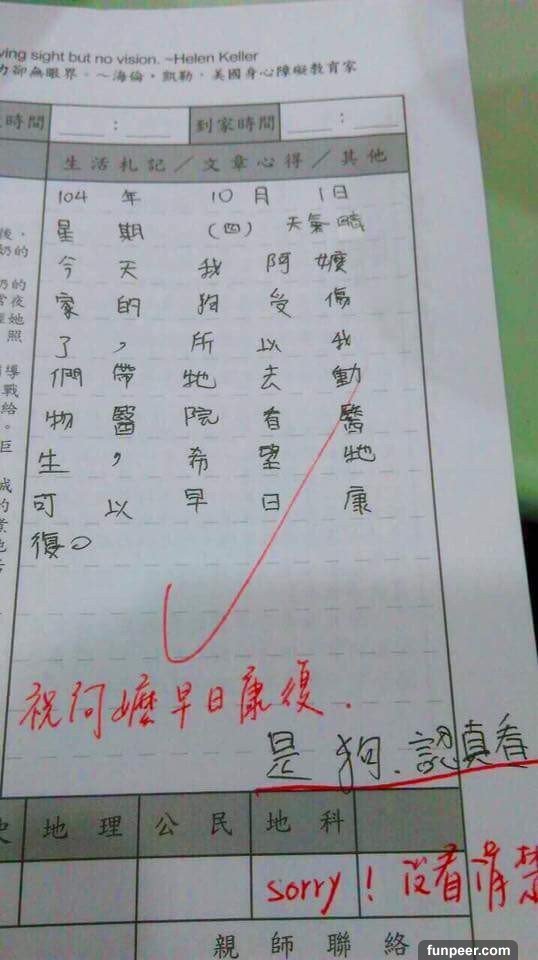 ving sight but no vision. ~Helen Keller
力卻無眼界。~海倫・凱勒．美國身心障礙教育家
時間 : 到家時間 :
生活札記／文章心得／其他
104 年 10 月 1日
星期(四) 天氣晴
今天我阿嬤
家的狗受傷
了，所以我
們帶牠去動
物醫院看醫
生，希望牠
可以早日康
復。
後，
奶的
奶的
常夜
她
照
導
戰
給
。
巨
成
的
業
祝阿嬤早日康復.
是狗、認真看
地理 公民 地科
sorry！沒看清楚
親師聯絡
funpeer.com